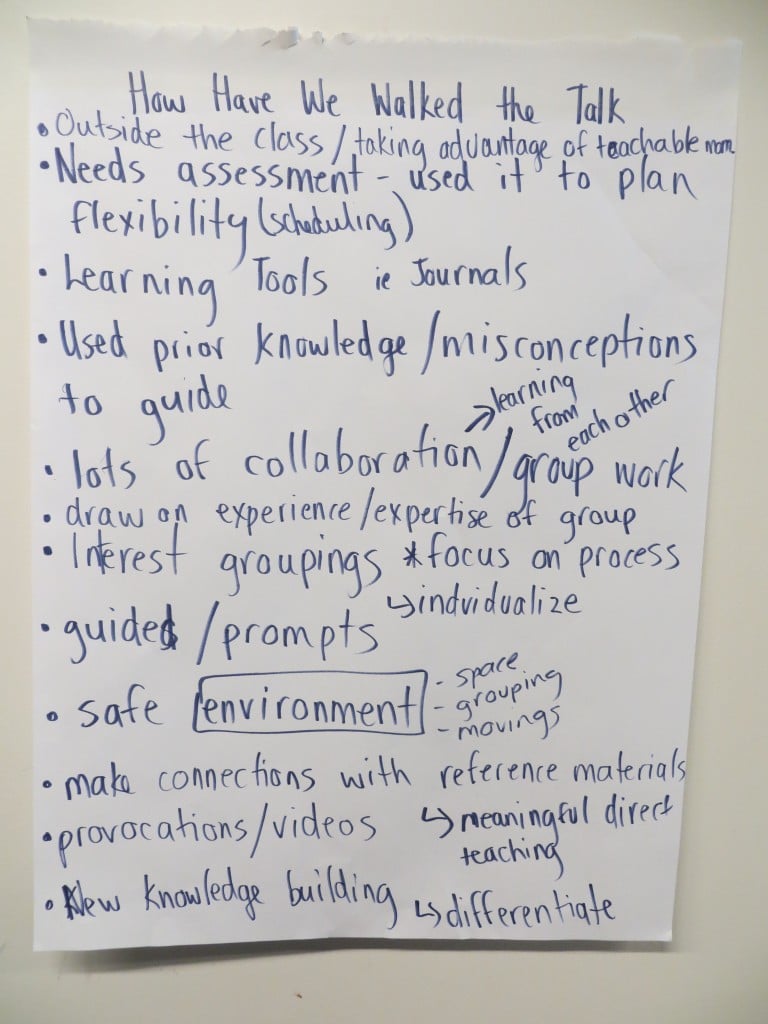 How Have We Walked the Talk
• Outside the class / taking advantage of teachable mom
• Needs assessment - used it to plan
flexibility (scheduling)
• Learning Tools ie Journals
• Used prior knowledge / misconceptions
to guide
→ learning
from
each other
• lots of collaboration / group work
• draw on experience / expertise of group
• Interest groupings * focus on process
↳ indvidualize
• guided / prompts
• safe environment
- space
- grouping
- movings
• make connections with reference materials
• provocations / videos ↳ meaningful direct
teaching
• New knowledge building ↳ differentiate